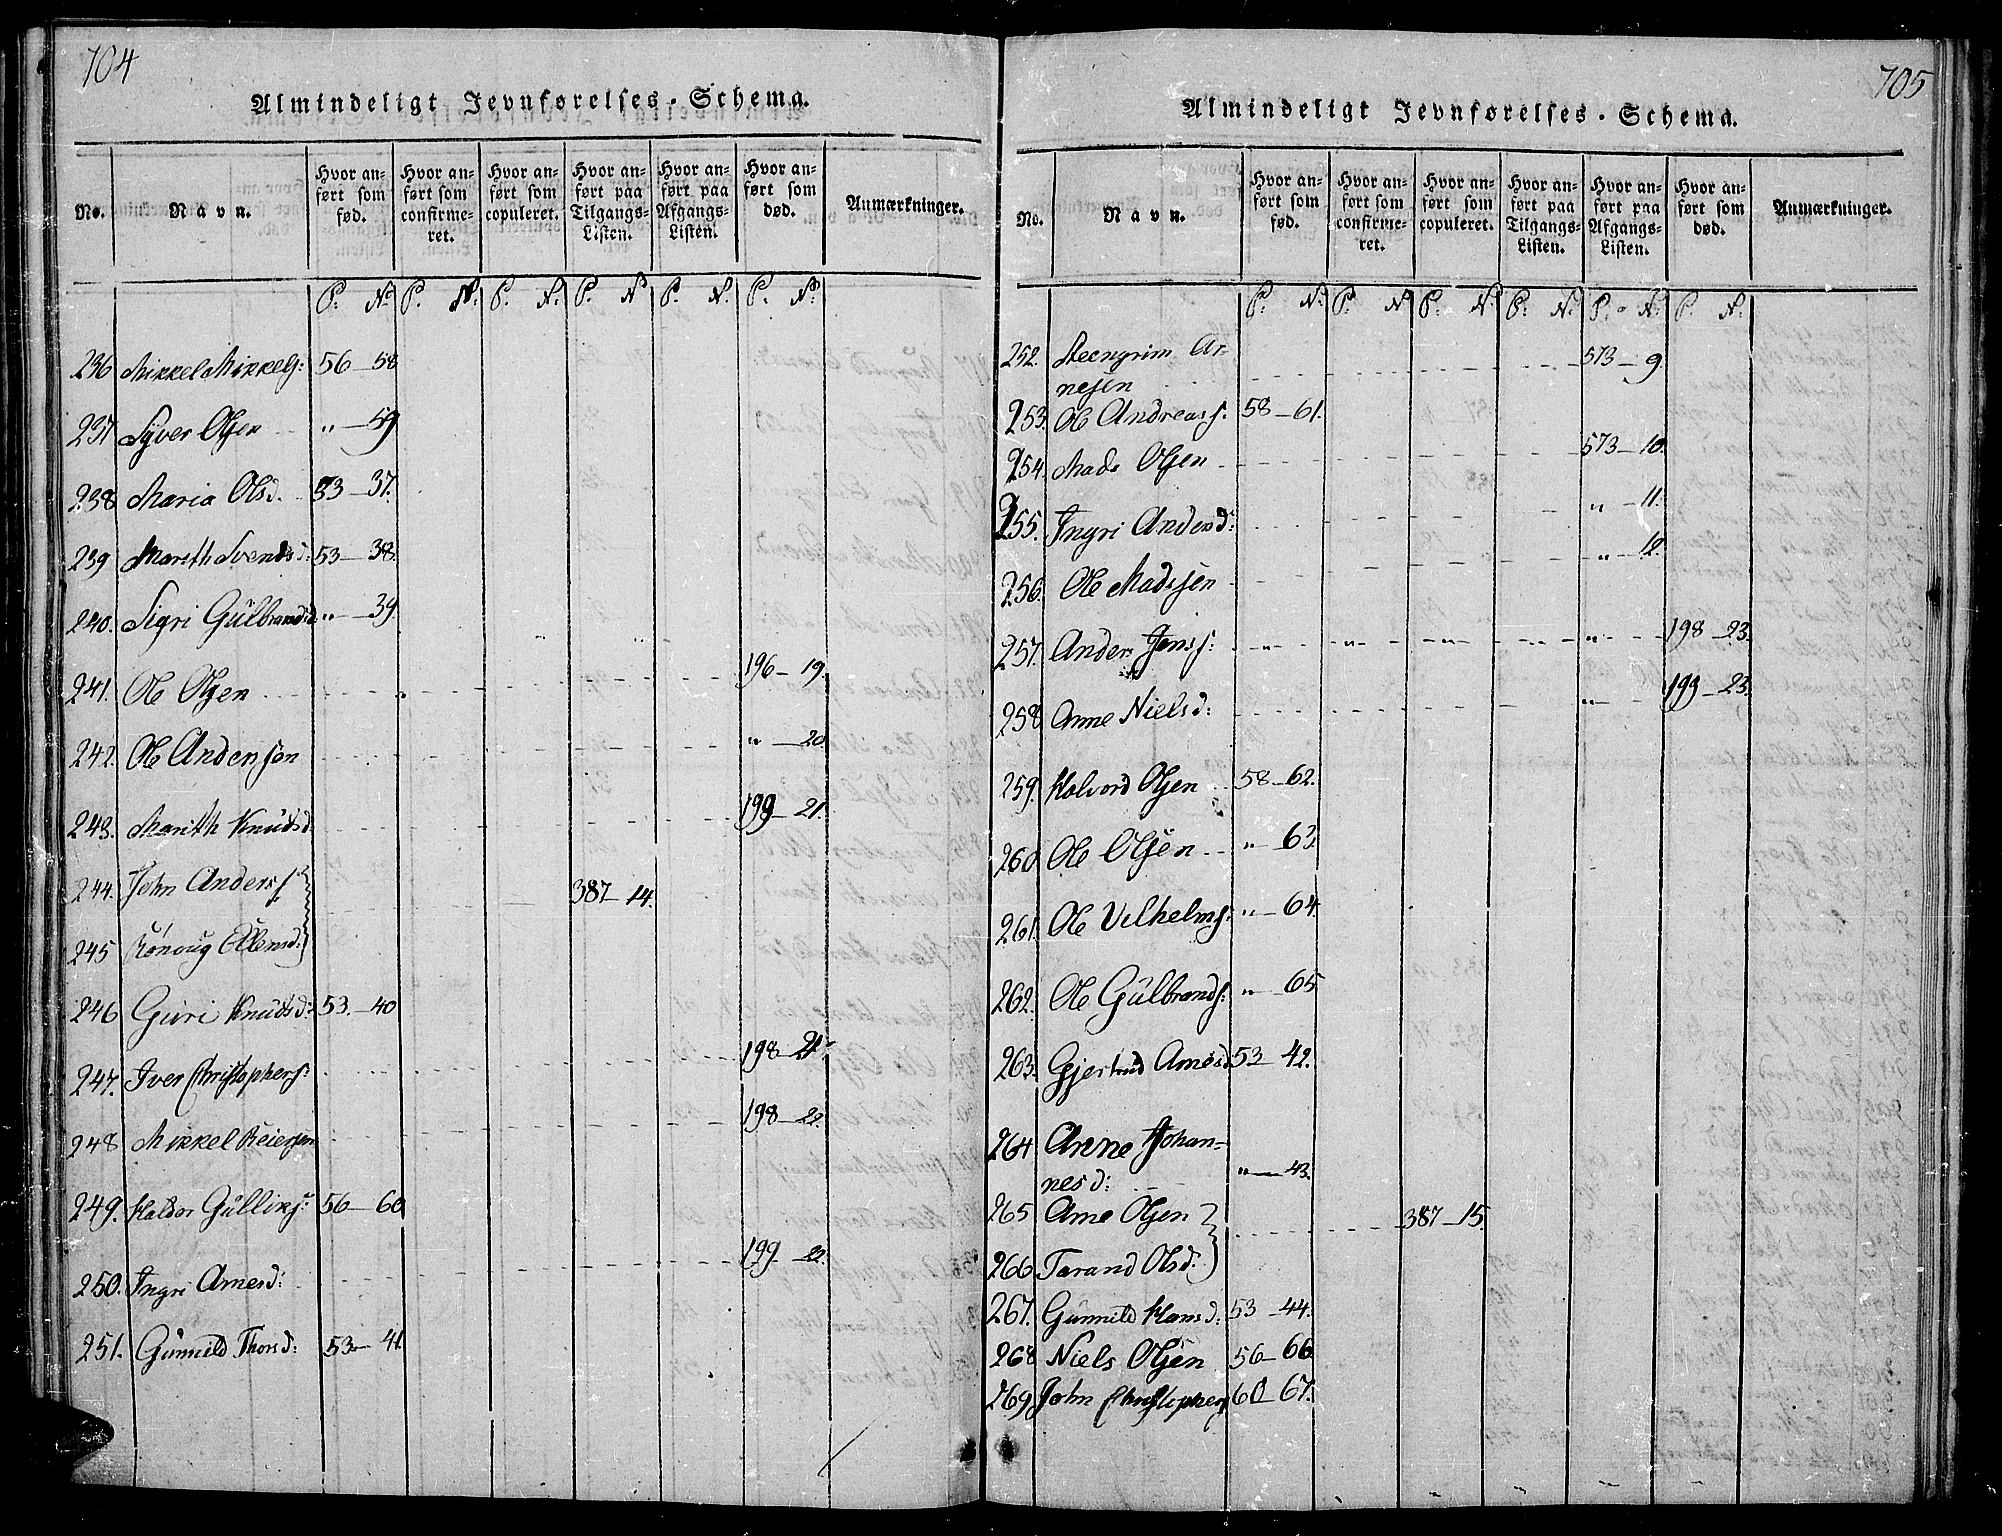 704
Almindeligt Jevnførelses-Schema.
No. Navn. Hvor anført som fød. Hvor anført som confirmeret. Hvor anført som copuleret. Hvor anført paa Tilgangs-Listen. Hvor anført paa Afgangs-Listen. Hvor anført som død. Anmærkninger.
P. No. P. N. P. N. P. N. P. N. P. No.
236 Mikkel Mikkels: 56 — 58
237 Syver Olsen „ — 59
238 Maria Olsd. 53 — 37.
239 Marith Svendsd: 53 — 38.
240. Sigri Gülbrandsd „ — 39.
241. Ole Olsen 196 — 19.
242. Ole Andersøn „ — 20
243. Marith Knüdsd 199 — 21.
244. John Anders s. 387 — 14.
245 Rønoug Ellensd:
246 Guri Knudsd: 53. — 40
247. Iver Christophers: 198 — 21
248 Mikkel Reiersen 198 — 22
249. Haldor Gülliks: 56 — 60
250. Ingri Arnesd: 199 — 22.
251. Günnild Thorsd: 53 — 41.
705
Almindeligt Jevnførelses-Schema.
No. Navn. Hvor anført som fød. Hvor anført som confirmeret. Hvor anført som copuleret. Hvor anført paa Tilgangs-Listen. Hvor anført paa Afgangs-Listen. Hvor anført som død. Anmærkninger.
P. N. P. N. P. N. P. N. P. N. P. N.
252. Steengrim Ar- 573 — 9.
nesen
253. Ole Andreass. 58 — 61.
254. Mads Olsen 573 — 10.
255. Ingri Andersd: „ 11.
256. Ole Madssen „ — 12
257. Anders Jenss: „ 198 — 23.
258 Anne Nielsd: „ 199 — 23.
259. Halvord Olsen 58 — 62.
260 Ole Olsen „ — 63
261. Ole Vilhelms: „ — 64.
262. Ole Gülbrands: „ — 65
263. Gjertrud Arnesd 53 — 42.
264 Anne Johan-
nesd: „ — 43.
265 Arne Olsen 387 — 15.
266 Tarand Olsd:
267. Günnild Hansd: 53 — 44.
268 Niels Olsen 56 — 66
269 John Christophers 60 — 67.